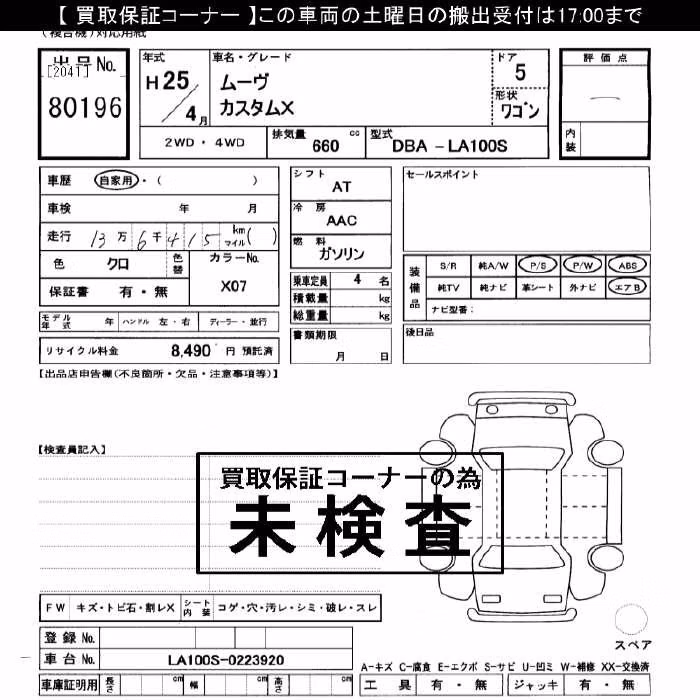 【 買取保証コーナー 】この車両の土曜日の搬出受付は17:00まで
(複合機)対応用紙
出品No.
[2041]
80196
年式
H 25 / 4 月
車名・グレード
ムーヴ
カスタムX
ドア
5
形状
ワゴン
評価点
内装
2WD・4WD
排気量 660 cc
型式 DBA - LA100S
車歴 自家用・( )
車検 年 月
走行 13万6千415 km マイル( )
色 クロ 色替
カラーNo.
X07
保証書 有・無
シフト
AT
冷房
AAC
燃料
ガソリン
乗車定員 4 名
積載量 kg
総重量 kg
セールスポイント
装備品
S/R 純A/W P/S P/W ABS
純TV 純ナビ 革シート 外ナビ エアB
ナビ型番:
モデル年式 年 ハンドル 左・右 ディーラー・並行
リサイクル料金 8,490 円 預託済
書類期限
月 日
後日品
【出品店申告欄(不良箇所・欠品・注意事項等)】
【検査員記入】
買取保証コーナーの為
未検査
FW キズ・トビ石・割レX シート内装 コゲ・穴・汚レ・シミ・破レ・スレ
登録No.
車台No. LA100S-0223920
スペア
A-キズ C-腐食 E-エクボ S-サビ U-凹ミ W-補修 XX-交換済
車庫証明用 長さ cm 幅 cm 高さ cm
工具 有・無 ジャッキ 有・無